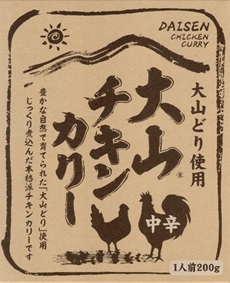 DAISEN
CHICKEN
CURRY
大山どり使用
大山®
チキン
カリー
豊かな自然で育てられた「大山どり」使用
じっくり煮込んだ本格派チキンカリーです
中辛
1人前200g